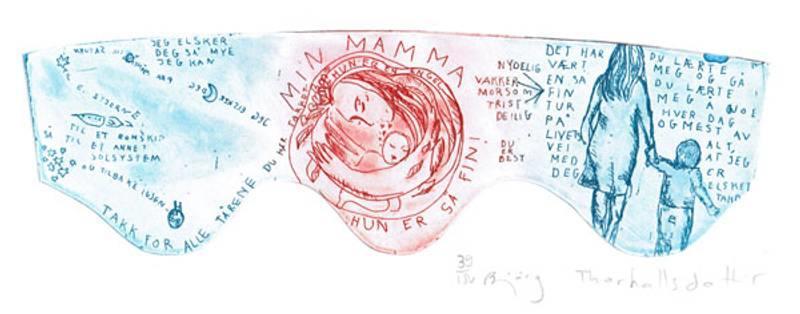 JEG ELSKER
DEG SÅ MYE
JEG KAN
JEG ELSKER DEG
EI STJERNE
TIL ET ROMSKIP
TIL ET ANNET
SOLSYSTEM
OG TILBAKE IGJEN
TAKK FOR ALLE TÅRENE DU HAR
MIN MAMMA
HUN ER EN ENGEL
HUN ER SÅ FIN!
NYDELIG
VAKKER
MORSOM
TRIST
DEILIG
DU
ER
BEST
DET HAR
VÆRT
EN SÅ
FIN
TUR
PÅ
LIVETS
VEI
MED
DEG
DU LÆRTE
MEG OG GÅ
DU LÆRTE
MEG Å NOE
HVER DAG
OG MEST AV
ALT,
AT JEG
ER
ELSKET
TAKK
39
150 Bjørg Thorhallsdottir